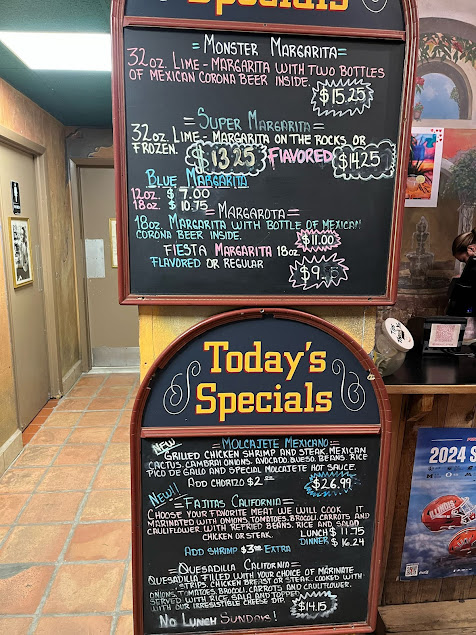 Specials
= MONSTER MARGARITA=
32OZ. LIME - MARGARITA WITH TWO BOTTLES
OF MEXICAN CORONA BEER INSIDE.
$15.25
=SUPER MARGARITA=
32OZ. LIME - MARGARITA ON THE ROCKS OR
FROZEN. $13.25 FLAVORED $14.25
BLUE MARGARITA
12OZ. $7.00
18OZ. $10.75
=MARGAROTA=
18OZ. MARGARITA WITH BOTTLE OF MEXICAN
CORONA BEER INSIDE.
$11.00
FIESTA MARGARITA 18OZ
FLAVORED OR REGULAR
Today's
Specials
NEW
=MOLCAJETE MEXICANO=
GRILLED CHICKEN SHRIMP AND STEAK, MEXICAN
CACTUS, CAMBRAI ONIONS, AVOCADO, QUESO, BEANS, RICE
PICO DE GALLO AND SPECIAL MOLCAJETE HOT SAUCE.
ADD CHORIZO $2
$26.99
NEW!!
=FAJITAS CALIFORNIA=
CHOOSE YOUR FAVORITE MEAT WE WILL COOK IT
MARINATED WITH ONIONS, TOMATOES, BROCOLI, CARROTS AND
CAULIFLOWER WITH REFRIED BEANS, RICE AND SALAD
CHICKEN OR STEAK. LUNCH $11.75
DINNER $16.24
ADD SHRIMP $3.00 EXTRA
=QUESADILLA CALIFORNIA=
QUESADILLA FILLED WITH YOUR CHOICE OF MARINATE
STRIPS, CHICKEN BREAST OR STEAK. COOKED WITH
ONIONS, TOMATOES, BROCOLI, CARROTS AND CAULIFLOWER.
SERVED WITH RICE SALA AND TOPPED
WITH OUR IRRESISTIBLE CHEESE DIP. $14.15
NO LUNCH SUNDAY!
2024 S
ILLINOIS